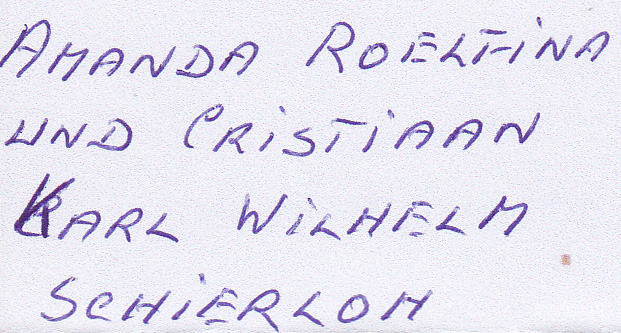 AMANDA ROELFINA
UND CRISTIAAN
KARL WILHELM
SCHIERLOH